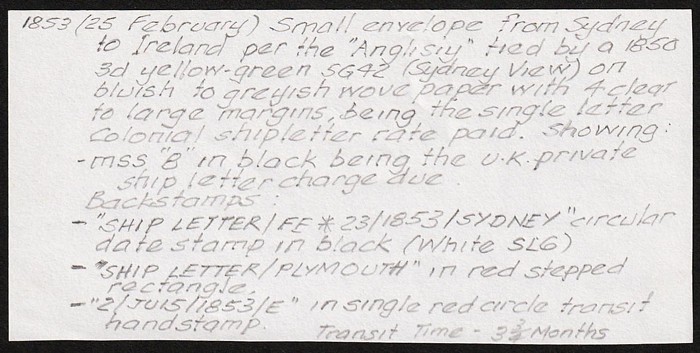 1853 (25 February) Small envelope from Sydney
to Ireland per the "Anglisiy" tied by a 1850
3d yellow-green SG42 (Sydney View) on
bluish to greyish wove paper with 4 clear
to large margins, being the single letter
Colonial shipletter rate paid. Showing:
-mss "8" in black being the U.K. private
ship letter charge due.
Backstamps:
- "SHIP LETTER/FE * 23/1853/SYDNEY" circular
date stamp in black (White SL6)
- "SHIP LETTER/PLYMOUTH" in red stepped
rectangle.
- "2/JU15/1853/E" in single red circle transit
handstamp. Transit Time - 3¾ Months